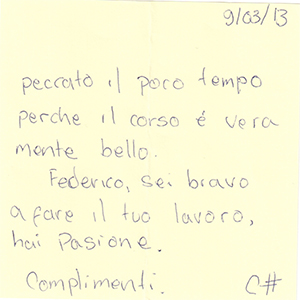 9/03/13
peccato il poco tempo
perche il corso é vera
mente bello.
Federico, sei bravo
a fare il tuo lavoro,
hai Pasione.
Complimenti. C#